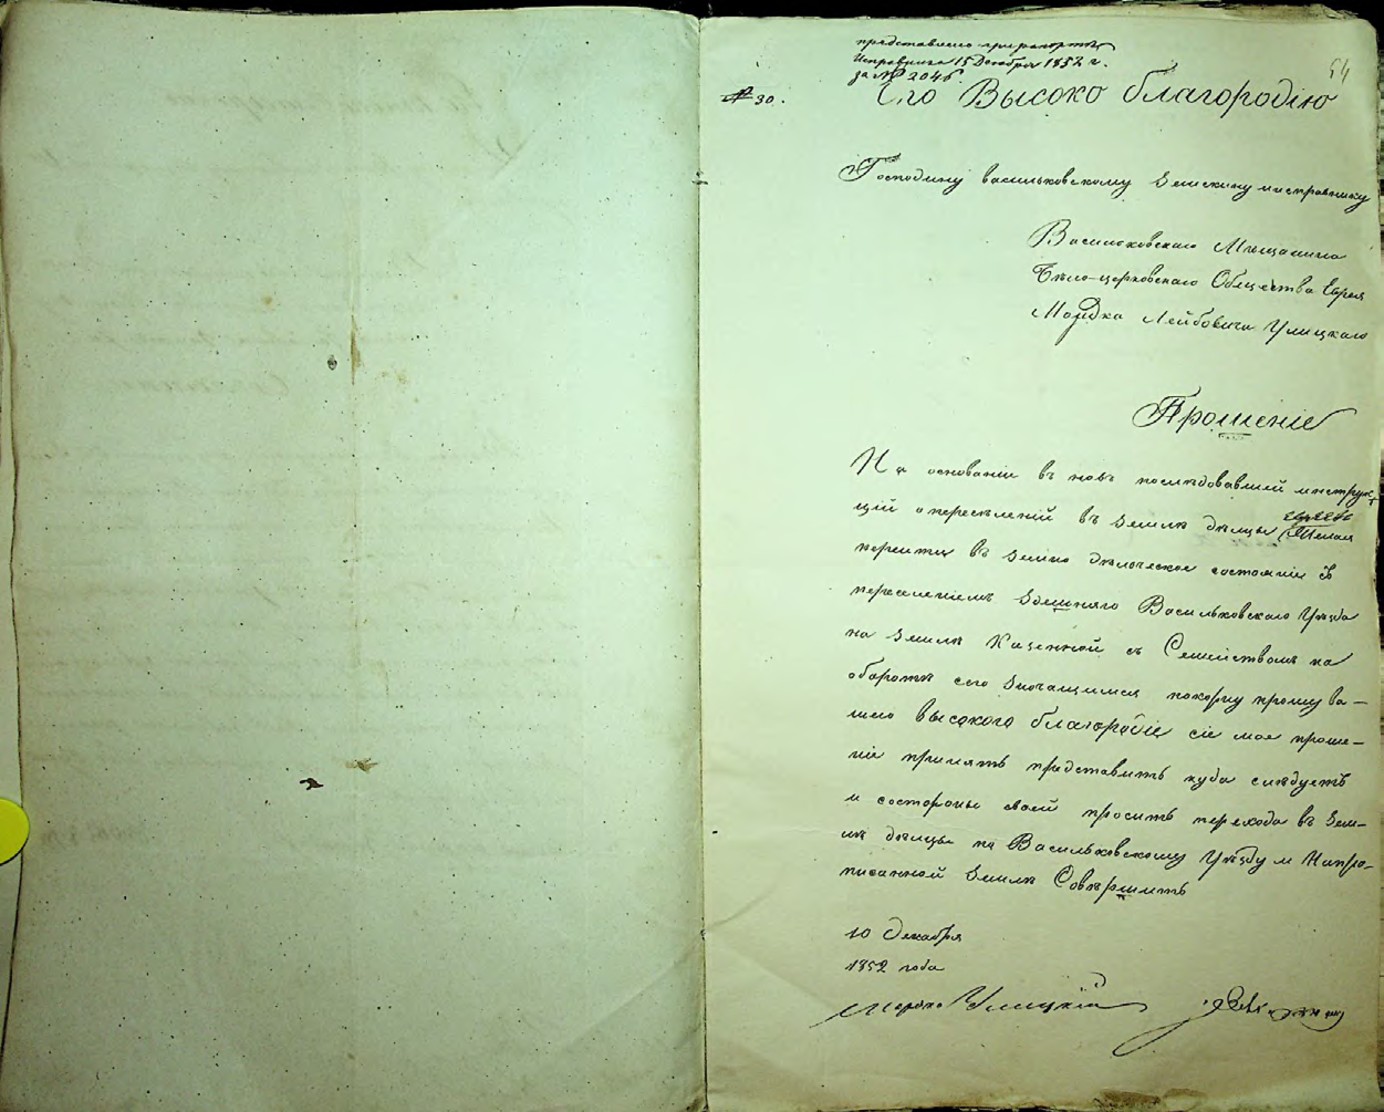 представлено при рапортѣ
Исправника 15 Декабря 1852 г.
за № 2046.
54
№ 30.
Его Высоко благородію
Господину васильковскому Земскому исправнику
Васильковскаго Мещанина
Бѣло-церковскаго Общества Еврея
Мордка Лейбовича Улицкаго
Прошеніе
На основаніи въ новь последовавшей инструк-
цій о переселеній въ Земле дѣльцы Евреевъ Желая
перейти въ Земло дѣлческое состояніе съ
переселеніемъ Здешняго Васильковскаго Уезда
на Земле Казенной съ Семействомъ на
оборотѣ сего Значащимся покорну прошу ва-
шего высокого благородіе сіе мое проше-
ніе принять представить куда следуетъ
и состороны своей просить перехода въ Зем-
ле дѣльцы по Васильковскому Уезду и На про-
писанной Земле Совершить
10 Декабря
1852 года
Мордко Улицкій